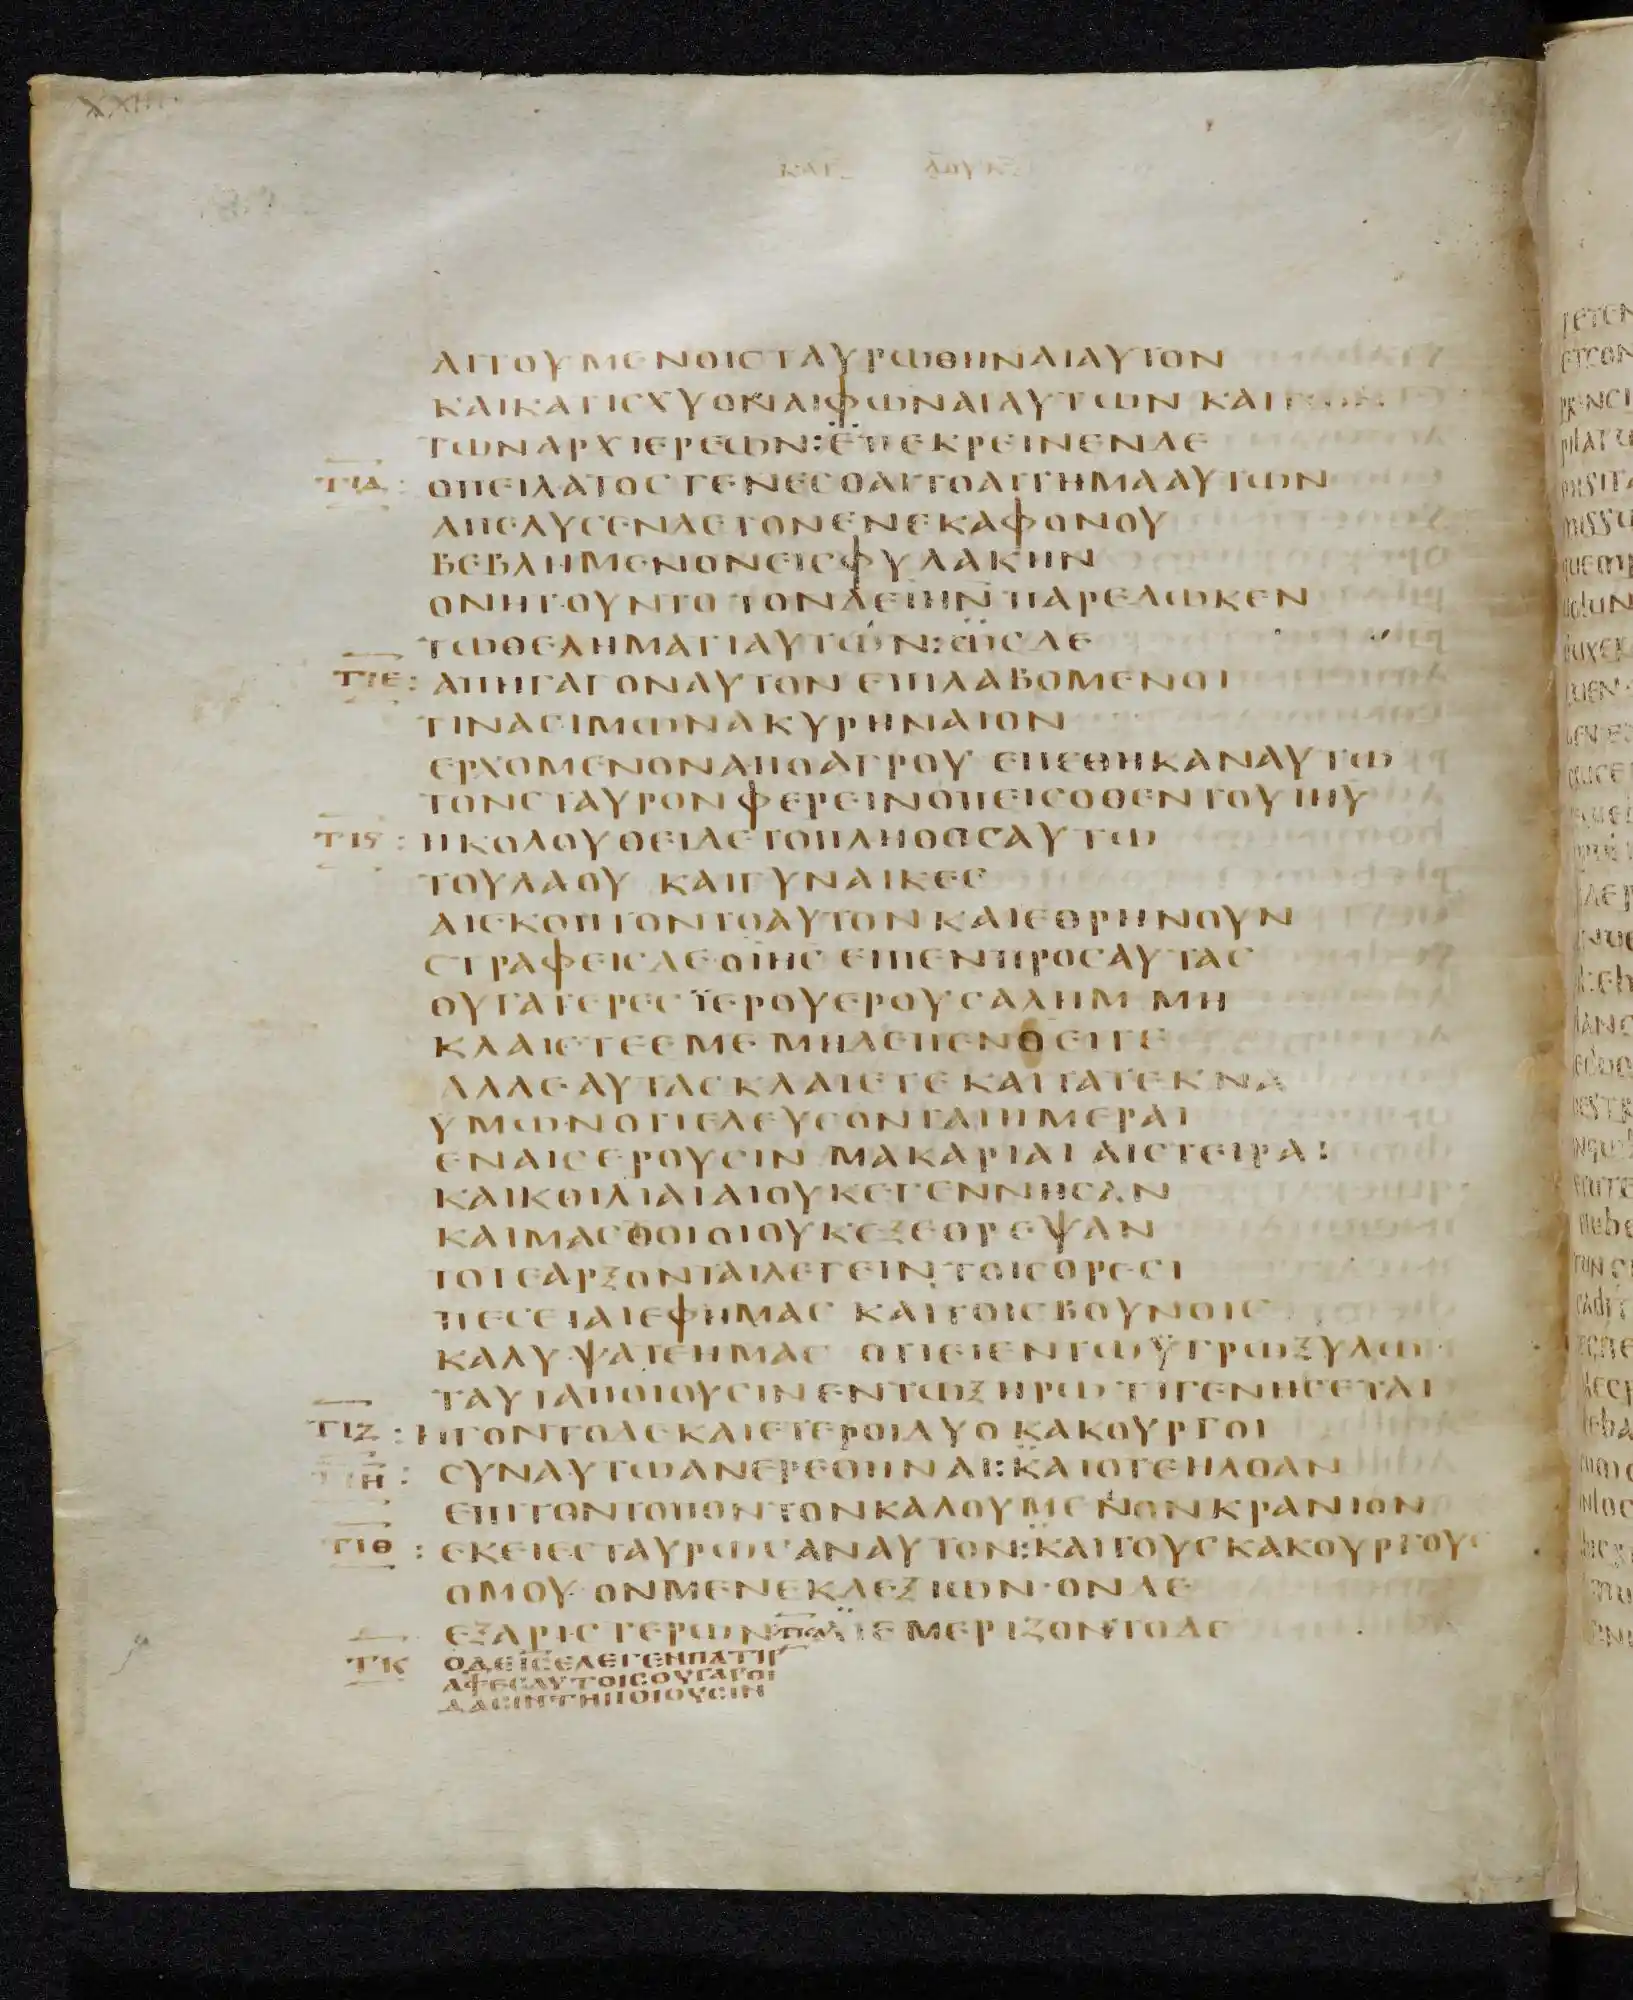 XXIII
ΑΙΤΟΥΜΕΝΟΙ ΣΤΑΥΡΩΘΗΝΑΙ ΑΥΤΟΝ
ΚΑΙ ΚΑΤΙΣΧΥΟΝ ΑΙ ΦΩΝΑΙ ΑΥΤΩΝ ΚΑΙ
ΤΩΝ ΑΡΧΙΕΡΕΩΝ: ΕΠΕΚΡΕΙΝΕΝ ΔΕ
ΤΙΔ: Ο ΠΕΙΛΑΤΟΣ ΓΕΝΕΣΘΑΙ ΤΟ ΑΙΤΗΜΑ ΑΥΤΩΝ
ΑΠΕΛΥΣΕΝ ΔΕ ΤΟΝ ΕΝΕΚΑ ΦΟΝΟΥ
ΒΕΒΛΗΜΕΝΟΝ ΕΙΣ ΦΥΛΑΚΗΝ
ΟΝ ΗΤΟΥΝΤΟ ΤΟΝ ΔΕ ΙΗΝ ΠΑΡΕΔΩΚΕΝ
ΤΩ ΘΕΛΗΜΑΤΙ ΑΥΤΩΝ: ΩΣ ΔΕ
ΤΙΕ: ΑΠΗΓΑΓΟΝ ΑΥΤΟΝ ΕΠΙΛΑΒΟΜΕΝΟΙ
ΤΙΝΑ ΣΙΜΩΝΑ ΚΥΡΗΝΑΙΟΝ
ΕΡΧΟΜΕΝΟΝ ΑΠΟ ΑΓΡΟΥ ΕΠΕΘΗΚΑΝ ΑΥΤΩ
ΤΟΝ ΣΤΑΥΡΟΝ ΦΕΡΕΙΝ ΟΠΕΙΣΟΘΕΝ ΤΟΥ ΙΗΥ
ΤΙϚ: ΗΚΟΛΟΥΘΕΙ ΔΕ ΤΟ ΠΛΗΘΟΣ ΑΥΤΩ
ΤΟΥ ΛΑΟΥ ΚΑΙ ΓΥΝΑΙΚΕΣ
ΑΙ ΕΚΟΠΤΟΝΤΟ ΑΥΤΟΝ ΚΑΙ ΕΘΡΗΝΟΥΝ
ΣΤΡΑΦΕΙΣ ΔΕ Ο ΙΗΣ ΕΙΠΕΝ ΠΡΟΣ ΑΥΤΑΣ
ΘΥΓΑΤΕΡΕΣ ΪΕΡΟΥΕΡΟΥΣΑΛΗΜ ΜΗ
ΚΛΑΙΕΤΕ ΕΜΕ ΜΗΔΕ ΠΕΝΘΕΙΤΕ
ΑΛΛ ΕΑΥΤΑΣ ΚΛΑΙΕΤΕ ΚΑΙ ΤΑ ΤΕΚΝΑ
ΥΜΩΝ ΟΤΙ ΕΛΕΥΣΟΝΤΑΙ ΗΜΕΡΑΙ
ΕΝ ΑΙΣ ΕΡΟΥΣΙΝ ΜΑΚΑΡΙΑΙ ΑΙ ΣΤΕΙΡΑΙ
ΚΑΙ ΚΟΙΛΙΑΙ ΑΙ ΟΥΚ ΕΓΕΝΝΗΣΑΝ
ΚΑΙ ΜΑΣΘΟΙ ΟΙ ΟΥΚ ΕΞΕΘΡΕΨΑΝ
ΤΟΤΕ ΑΡΞΟΝΤΑΙ ΛΕΓΕΙΝ ΤΟΙΣ ΟΡΕΣΙ
ΠΕΣΕΤΑΙ ΕΦ ΗΜΑΣ ΚΑΙ ΤΟΙΣ ΒΟΥΝΟΙΣ
ΚΑΛΥΨΑΤΕ ΗΜΑΣ ΟΤΙ ΕΙ ΕΝ ΤΩ ΫΓΡΩ ΞΥΛΩ
ΤΑΥΤΑ ΠΟΙΟΥΣΙΝ ΕΝ ΤΩ ΞΗΡΩ ΤΙ ΓΕΝΗΣΕΤΑΙ
ΤΙΖ: ΗΓΟΝΤΟ ΔΕ ΚΑΙ ΕΤΕΡΟΙ ΔΥΟ ΚΑΚΟΥΡΓΟΙ
ΤΙΗ: ΣΥΝ ΑΥΤΩ ΑΝΕΡΕΘΗΝΑΙ: ΚΑΙ ΟΤΕ ΗΛΘΑΝ
ΕΠΙ ΤΟΝ ΤΟΠΟΝ ΤΟΝ ΚΑΛΟΥΜΕΝΟΝ ΚΡΑΝΙΟΝ
ΤΙΘ: ΕΚΕΙ ΕΣΤΑΥΡΩΣΑΝ ΑΥΤΟΝ: ΚΑΙ ΤΟΥΣ ΚΑΚΟΥΡΓΟΥΣ
ΟΜΟΥ ΟΝ ΜΕΝ ΕΚ ΔΕΞΙΩΝ· ΟΝ ΔΕ
ΕΞ ΑΡΙΣΤΕΡΩΝ ΔΙΕΜΕΡΙΖΟΝΤΟ ΔΕ
ΤΚ Ο ΔΕ ΙΣ ΕΛΕΓΕΝ ΠΑΤΗΡ
ΑΦΕΣ ΑΥΤΟΙΣ ΟΥ ΓΑΡ ΟΙ
ΔΑΣΙΝ ΤΗ ΠΟΙΟΥΣΙΝ